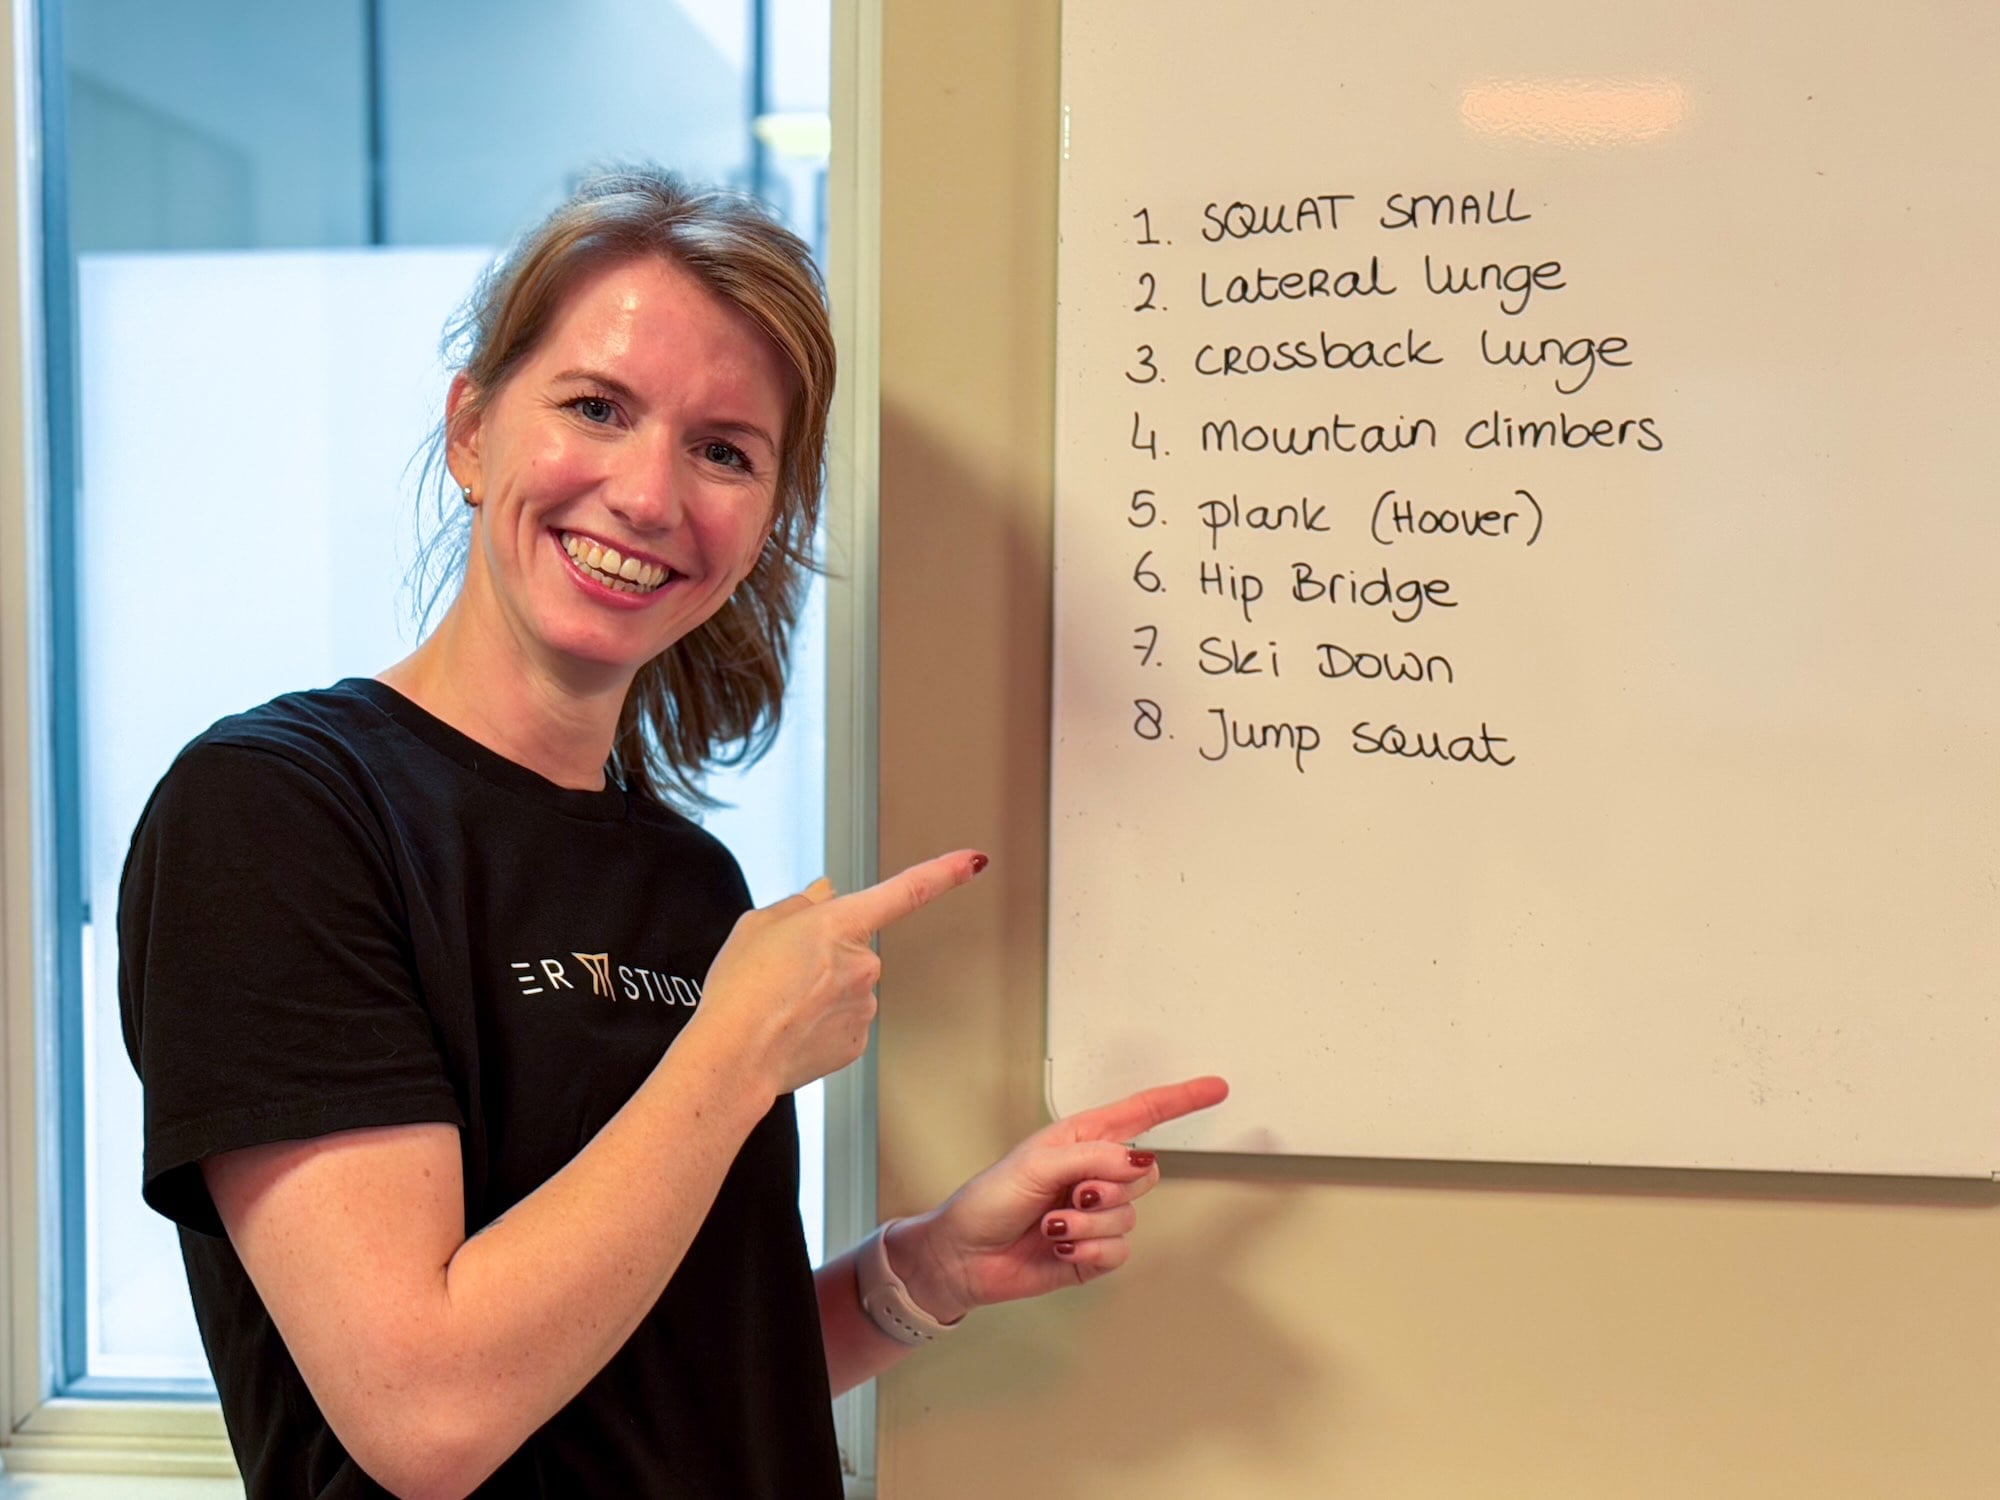 1. SQUAT SMALL
2. Lateral lunge
3. crossback lunge
4. mountain climbers
5. plank (Hoover)
6. Hip Bridge
7. Ski Down
8. Jump squat
ER STUDI